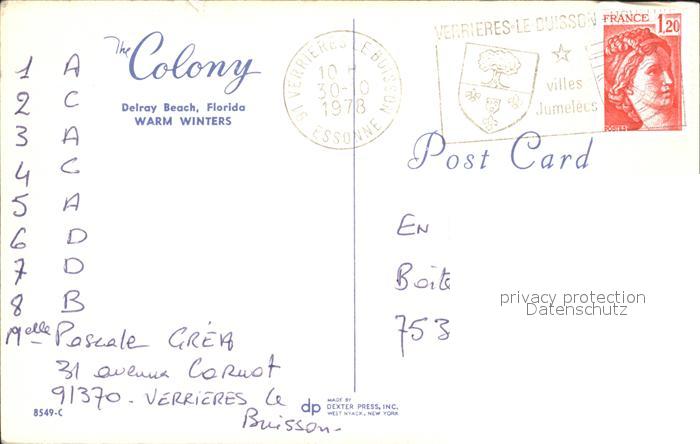 The Colony
Delray Beach, Florida
WARM WINTERS
1 A
2 C
3 A
4 C
5 A
6 D
7 D
8 B
Melle Pascale
31 avenue Carnot
91370 - VERRIERES le
Buisson -
8549-C
91 VERRIERES LE BUISSON
10 H
30-10
1978
ESSONNE
VERRIERES-LE BUISSON
villes
Jumelées
FRANCE
1,20
POSTES
Post Card
EN
Boîte
753
privacy protection
Datenschutz
dp
MADE BY
DEXTER PRESS, INC.
WEST NYACK, NEW YORK